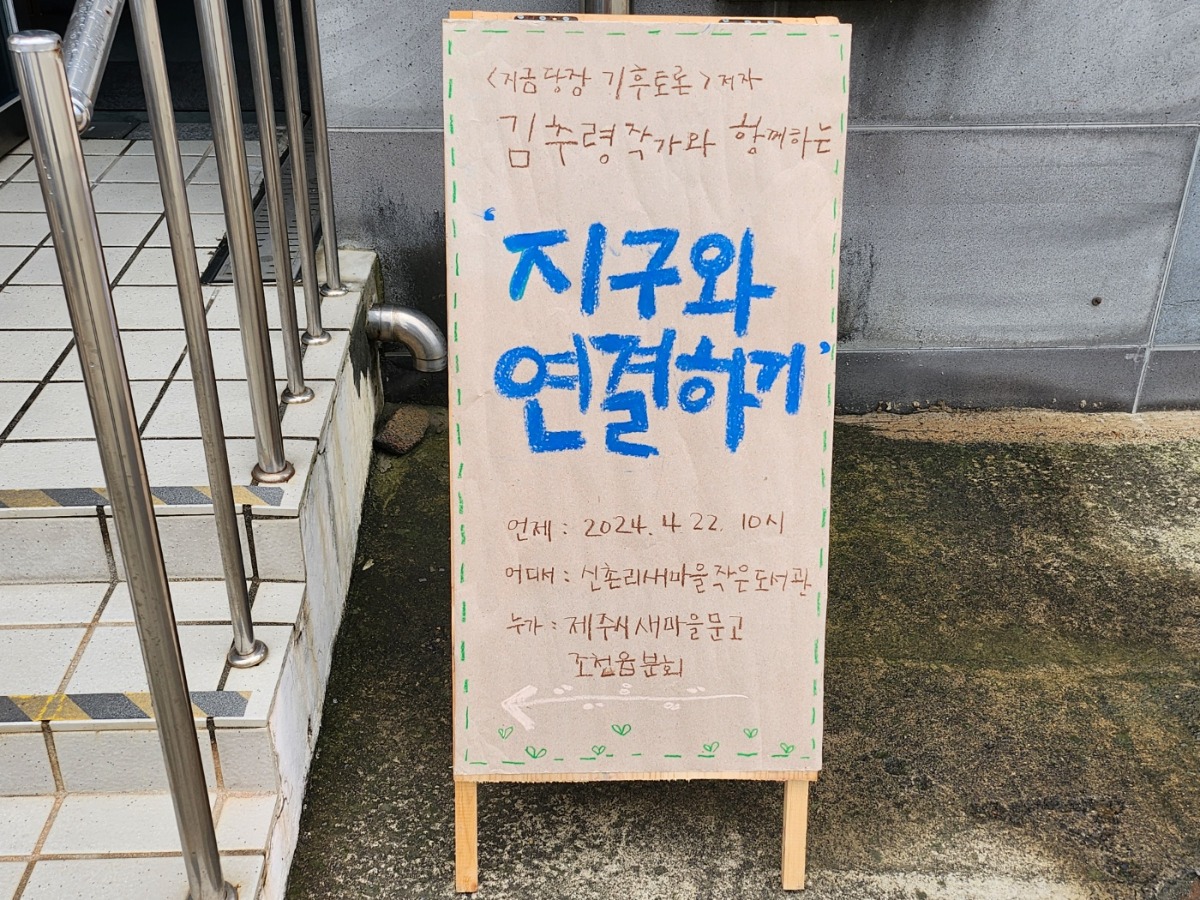 <지금 당장 기후토론> 저자
김추령작가와 함께하는
'지구와
연결하기'
언제 : 2024. 4 22. 10시
어디서 : 신촌리새마을작은도서관
누가 : 제주시새마을문고
조천읍분회